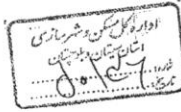 اداره کل مسکن و شهرسازی
استان سیستان و بلوچستان
شماره:
تاریخ: